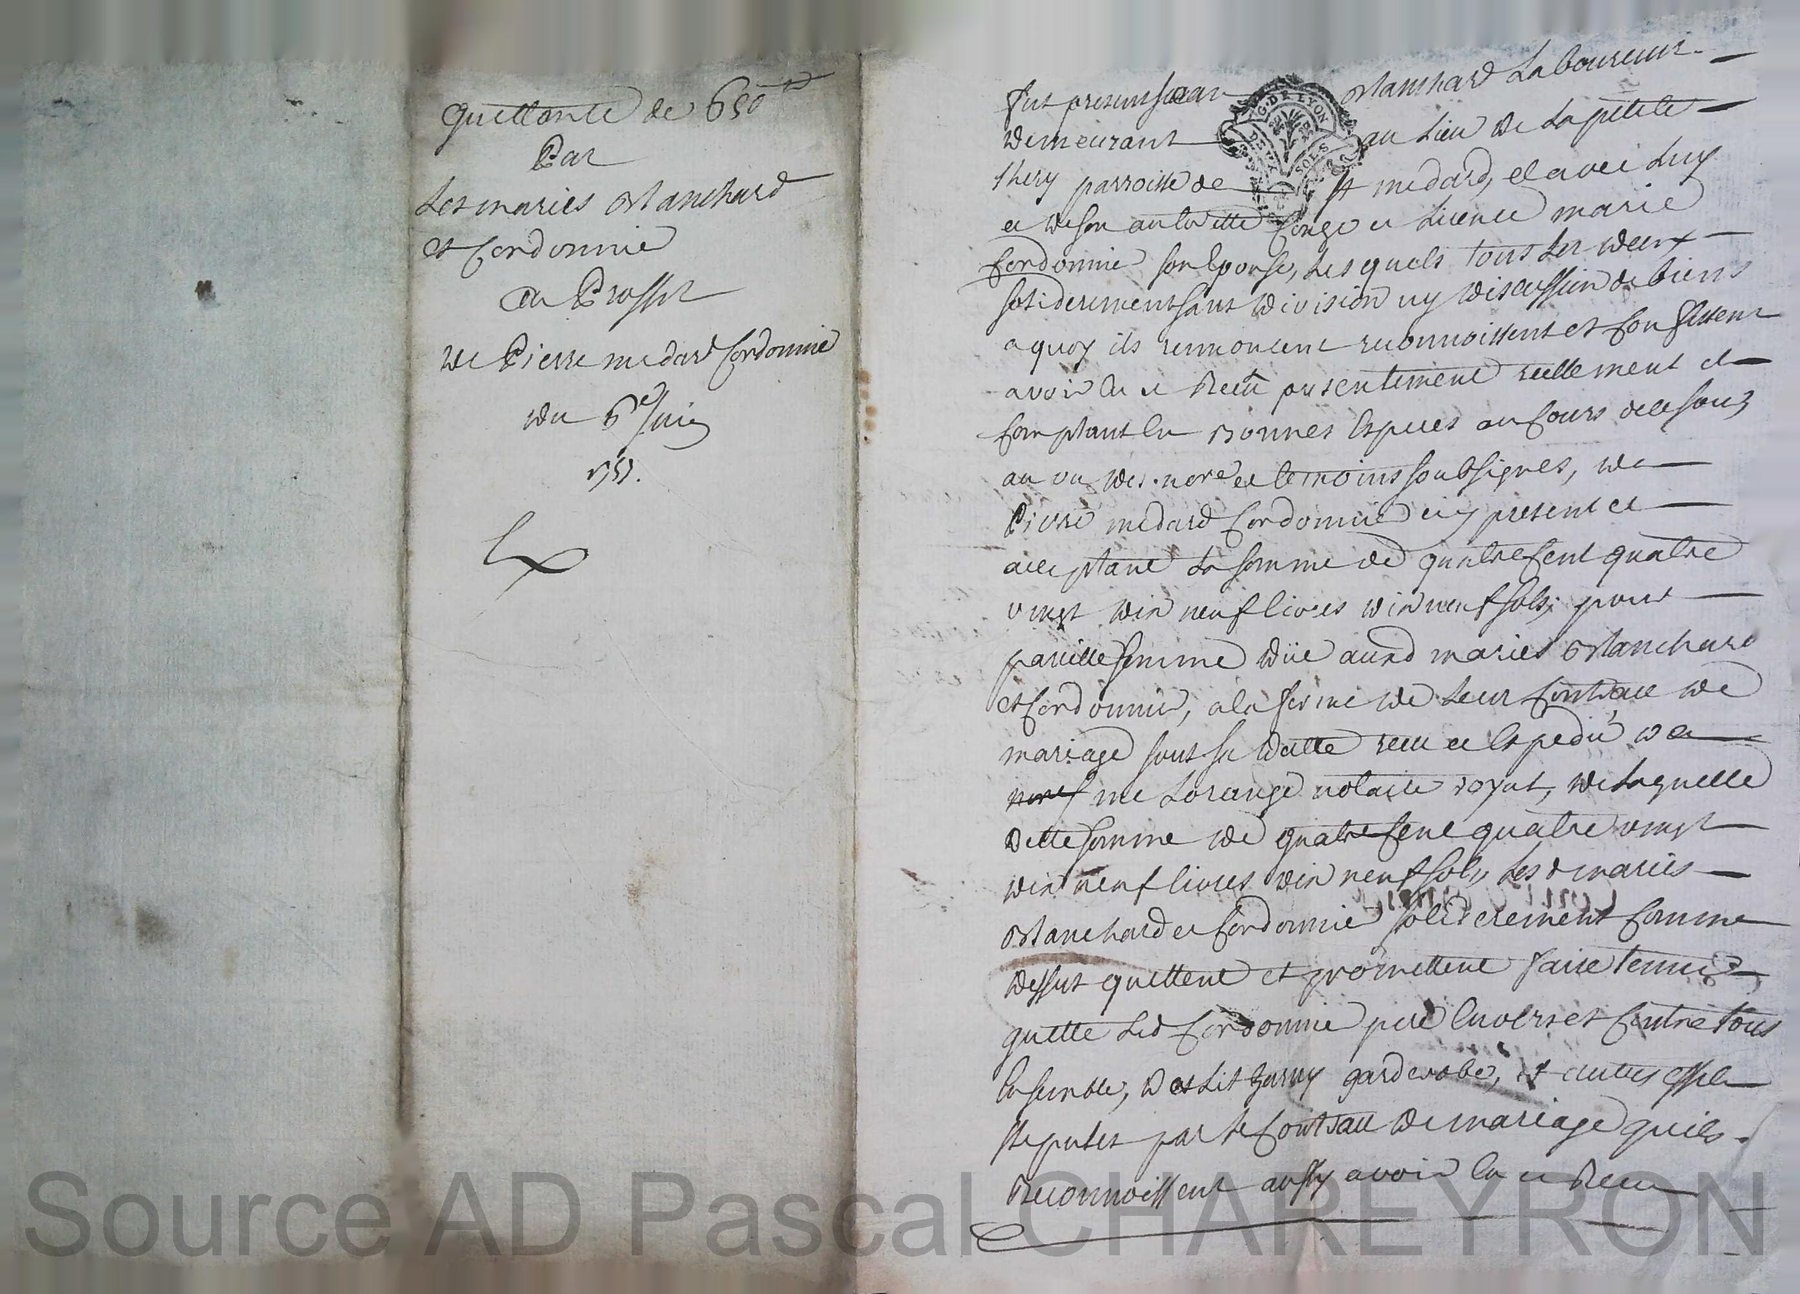 Quittance de 650 ₶
Par
Les mariés Blanchard
et Cordonnié
Au Proffit
de Pierre medard Cordonnié
du 6e Juin
1751.
fut present Jean Blanchard Laboureur
demeurant au Lieu de La petite
Thery parroisse de St medard, et avec Luy
et de son authorité Congé et Licence marie
Cordonnié son Epouse, Lesquels tous Les deux
soliderement sans division ny discussion de biens
a quoy ils rennoncent reconnoissent et Confessent
avoir Eu et Receu presentement reellement et
Comptant En Bonnes Especes au Cours de ce Jour
au vu des nore et temoins soubsignés, de
Pierre medard Cordonnié icy present et
acceptant La somme de quatre Cent quatre
vingt dix neuf livres dix neuf sols, pour
pareille somme düe auxd mariés Blanchard
et Cordonnié, a la forme de Leur Contract de
mariage sous sa datte receu et Expedié de
me Lorange notaire royal, de Laquelle
ditte somme de quatre Cent quatre vingt
dix neuf livres dix neuf sols, Lesd mariés
Blanchard et Cordonnié soliderement Comme
dessus quittent et promettent faire tenir
quitte Led Cordonnié pere Envers et Contre tous
Ensemble, des Lit garny garderobe, et autres effets
stipulés par le Contract de mariage quils
Reconnoissent aussy avoir Eu et Receu
G. DE LYON
SOLS
Source AD Pascal CHAREYRON